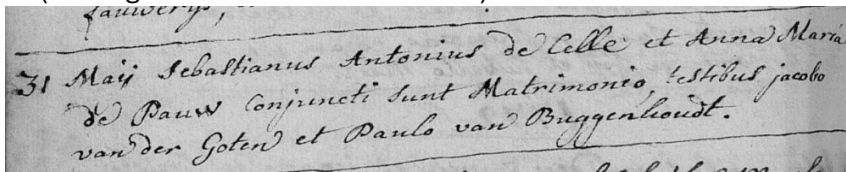 Jauwerijs,
31 Maij Sebastianus Antonius de Celle et Anna Maria
de Pauw Conjuncti sunt Matrimonio, testibus jacobo
van der Goten et Paulo van Buggenhoudt.